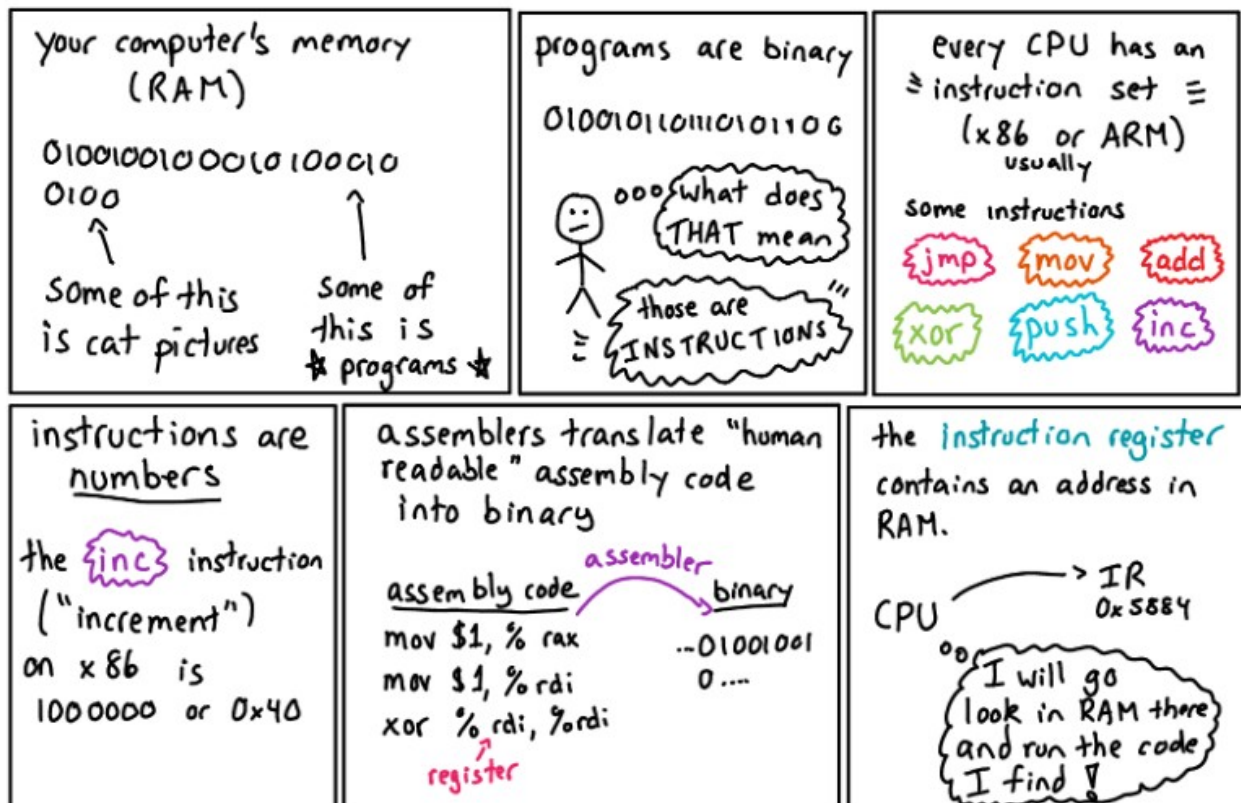 your computer's memory
(RAM)
010010010001010001 0
0100
Some of this
is cat pictures
some of
this is
programs
programs are binary
0100101101110101100
what does
THAT mean
those are
INSTRUCTIONS
every CPU has an
instruction set
(x86 or ARM)
usually
some instructions
jmp
mov
add
xor
push
inc
instructions are
numbers
the inc instruction
("increment")
on x86 is
1000000 or 0x40
assemblers translate "human
readable" assembly code
into binary
assembler
assembly code
binary
mov $1, % rax
...01001001
mov $1, % rdi
0....
xor % rdi, %rdi
register
the instruction register
contains an address in
RAM.
CPU
IR
0x5884
I will go
look in RAM there
and run the code
I find !